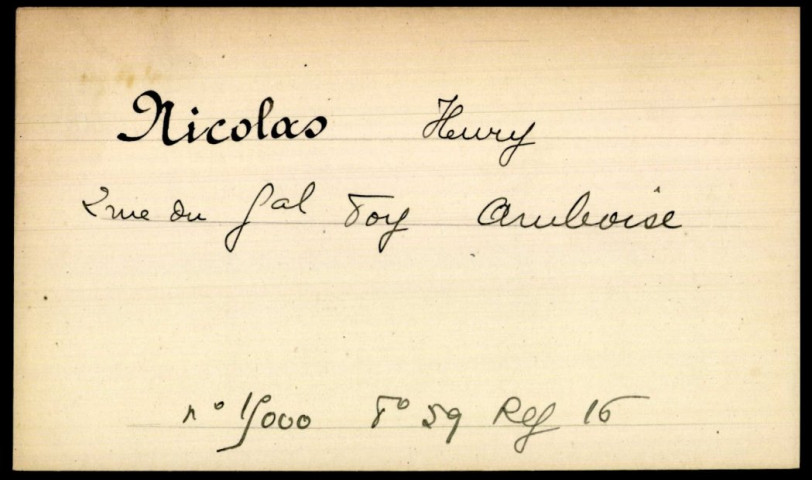 Nicolas Henry
2 rue du Gal Foy Amboise
n° 15000 F° 59 Reg 15